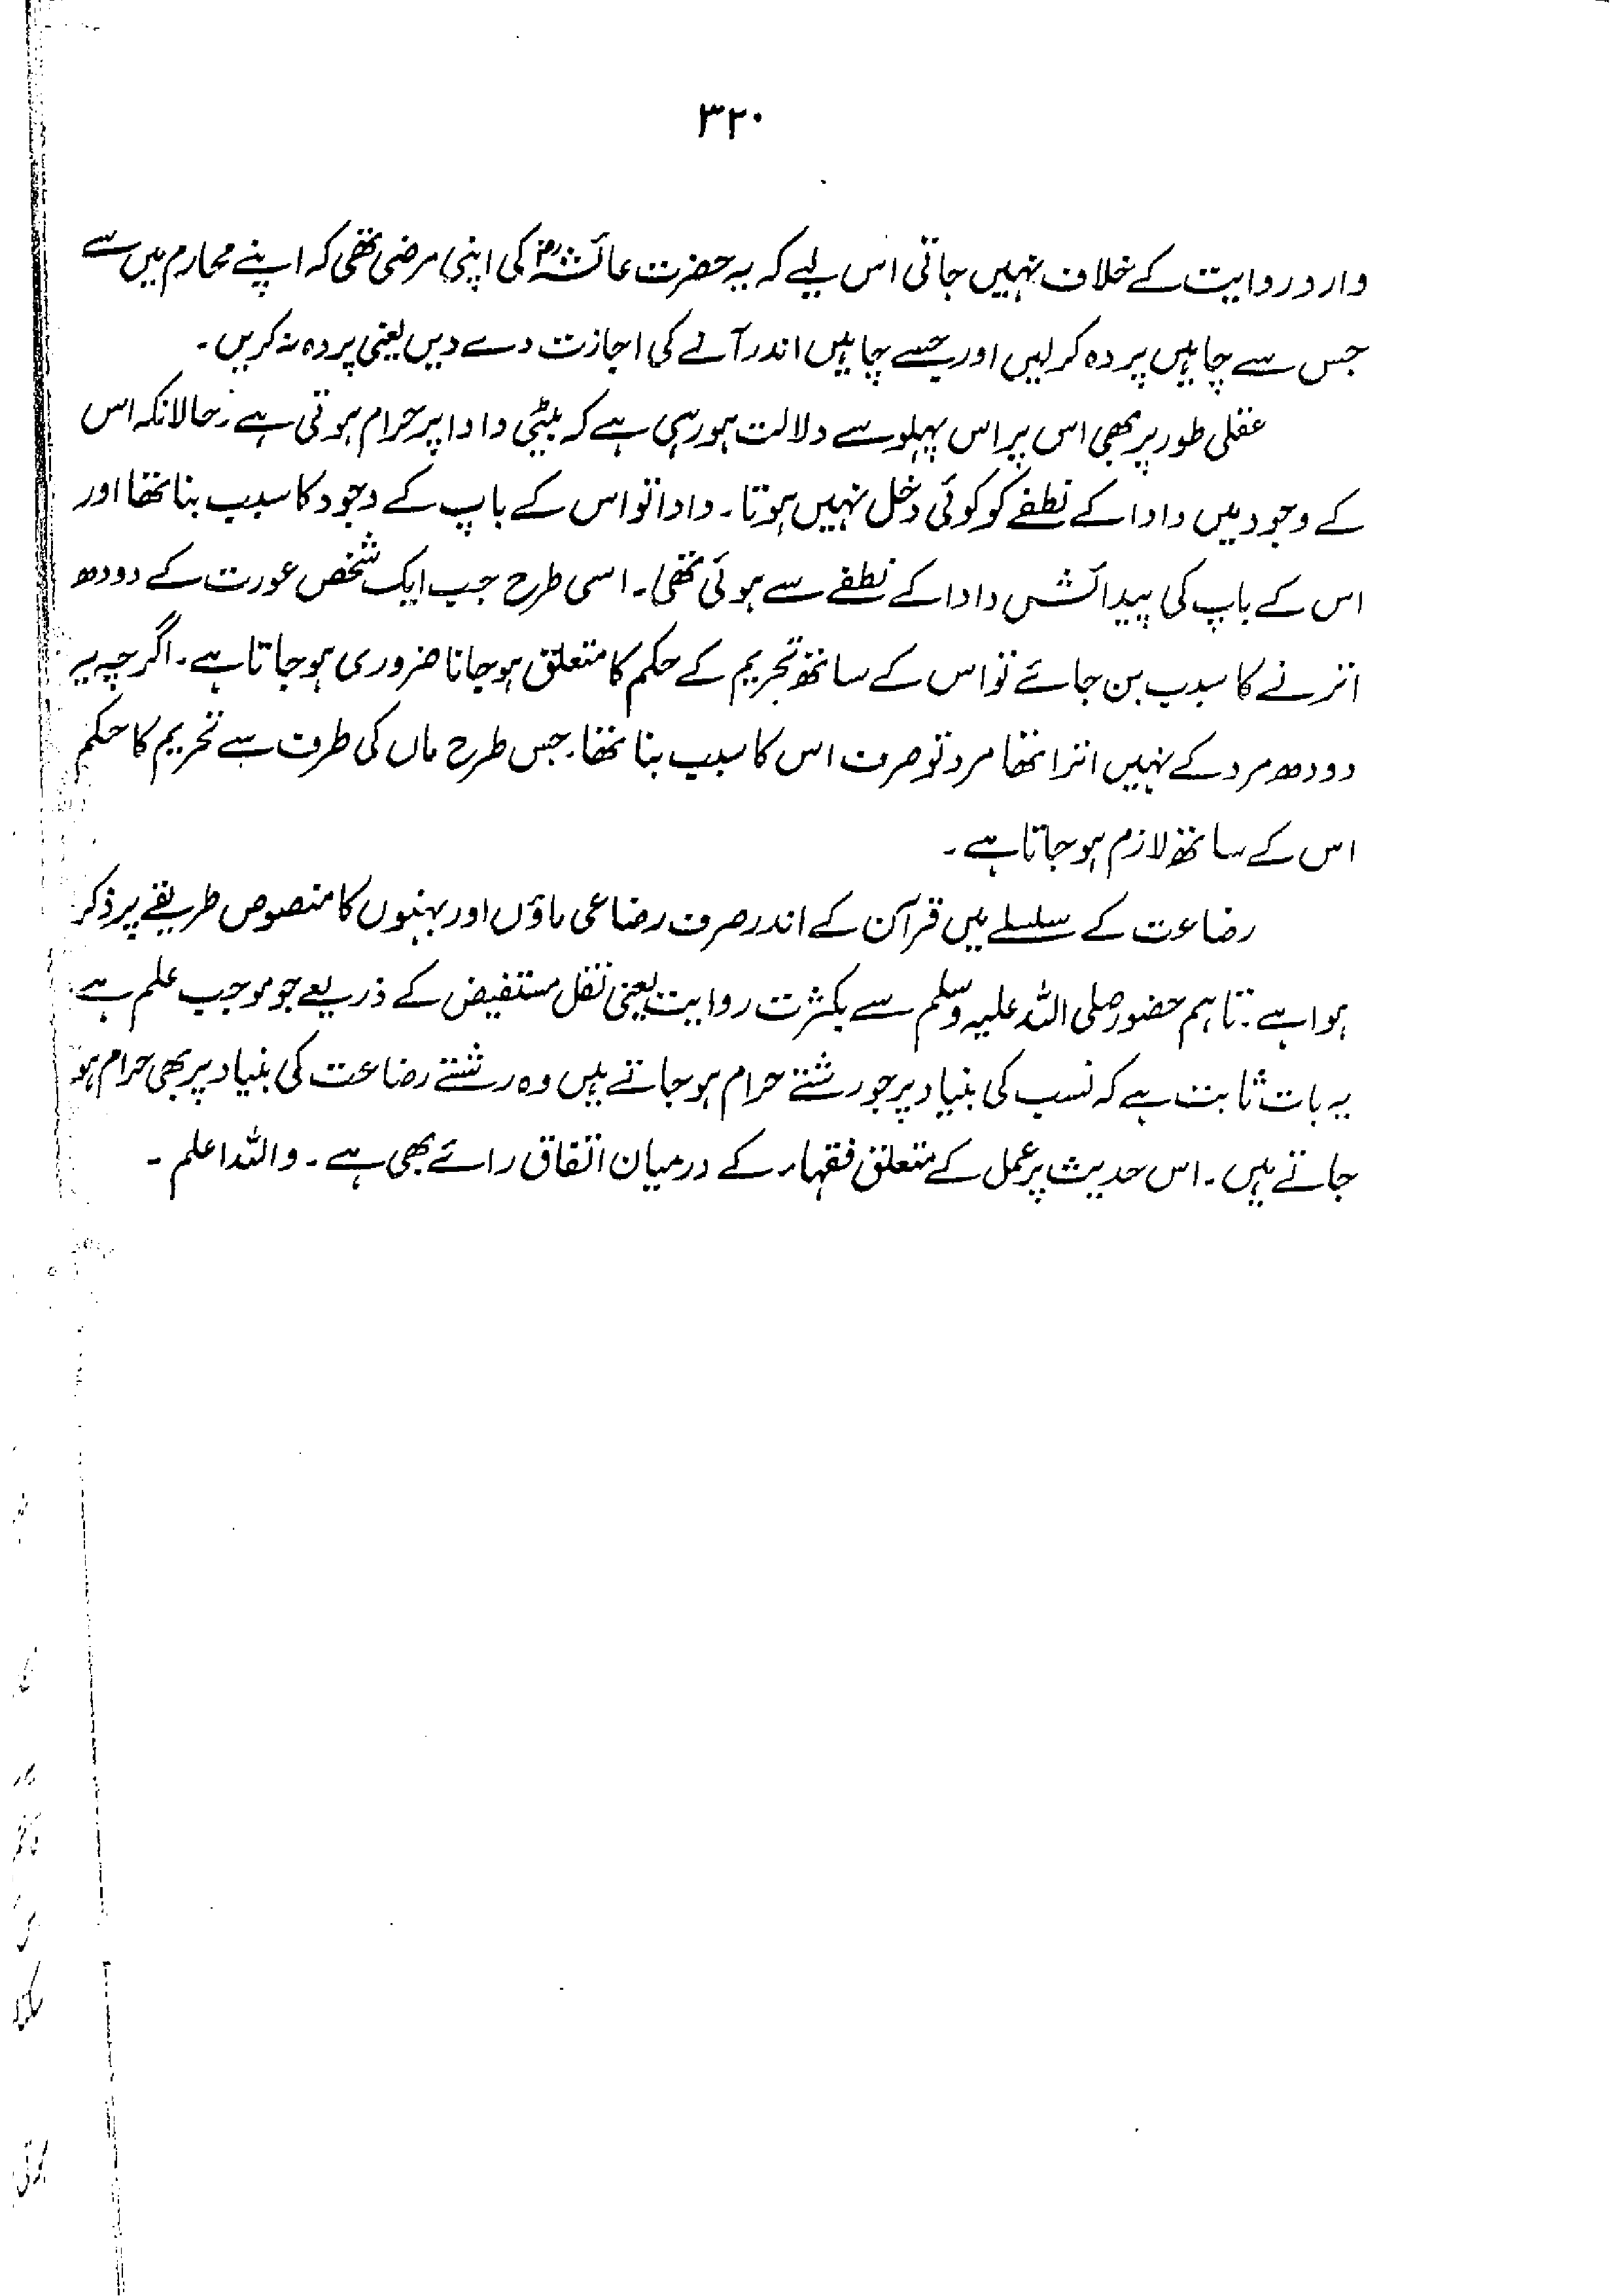 ۳۲۰
وارد روایت کے خلاف نہیں جاتی اس لیے کہ یہ حضرت عائشہؓ کی اپنی مرضی تھی کہ اپنے محارم میں سے
جس سے چاہیں پردہ کر لیں اور جسے چاہیں اندر آنے کی اجازت دے دیں یعنی پردہ نہ کریں۔
عقلی طور پر بھی اس پر اس پہلو سے دلالت ہو رہی ہے کہ بیٹی دادا پر حرام ہوتی ہے۔ حالانکہ اس
کے وجود میں دادا کے نطفے کو کوئی دخل نہیں ہوتا۔ دادا تو اس کے باپ کے وجود کا سبب بنا تھا اور
اس کے باپ کی پیدائش دادا کے نطفے سے ہوئی تھی۔ اسی طرح جب ایک شخص عورت کے دودھ
اترنے کا سبب بن جائے تو اس کے ساتھ تحریم کے حکم کا متعلق ہو جانا ضروری ہو جاتا ہے۔ اگرچہ یہ
دودھ مرد کے نہیں اترا تھا مرد تو صرف اس کا سبب بنا تھا۔ جس طرح ماں کی طرف سے تحریم کا حکم
اس کے ساتھ لازم ہو جاتا ہے۔
رضاعت کے سلسلے میں قرآن کے اندر صرف رضاعی ماؤں اور بہنوں کا منصوص طریقے پر ذکر
ہوا ہے۔ تاہم حضور صلی اللہ علیہ وسلم سے بکثرت روایت یعنی نقل مستفیض کے ذریعے جو موجب علم ہے
یہ بات ثابت ہے کہ نسب کی بنیاد پر جو رشتے حرام ہو جاتے ہیں وہ رشتے رضاعت کی بنیاد پر بھی حرام ہو
جاتے ہیں۔ اس حدیث پر عمل کے متعلق فقہاء کے درمیان اتفاق رائے بھی ہے۔ واللہ اعلم۔